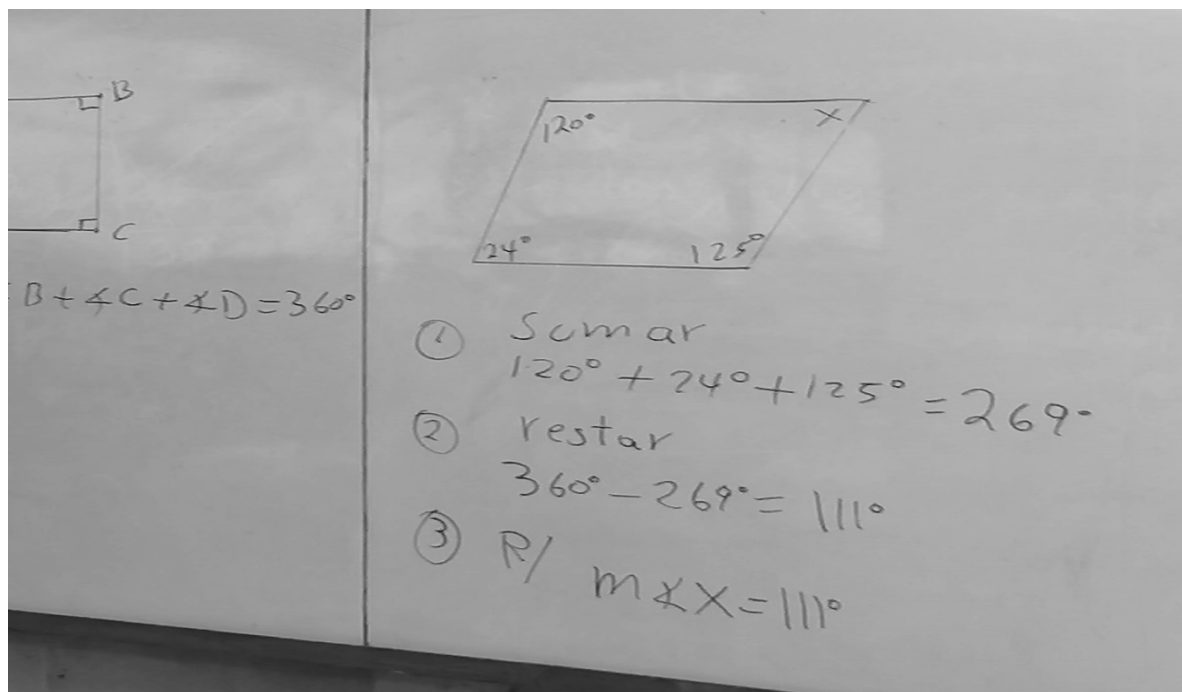 B
C
B + ∡C + ∡D = 360°
120°
X
24°
125°
① Sumar
120° + 24° + 125° = 269°
② restar
360° - 269° = 111°
③ R/
m∡X = 111°